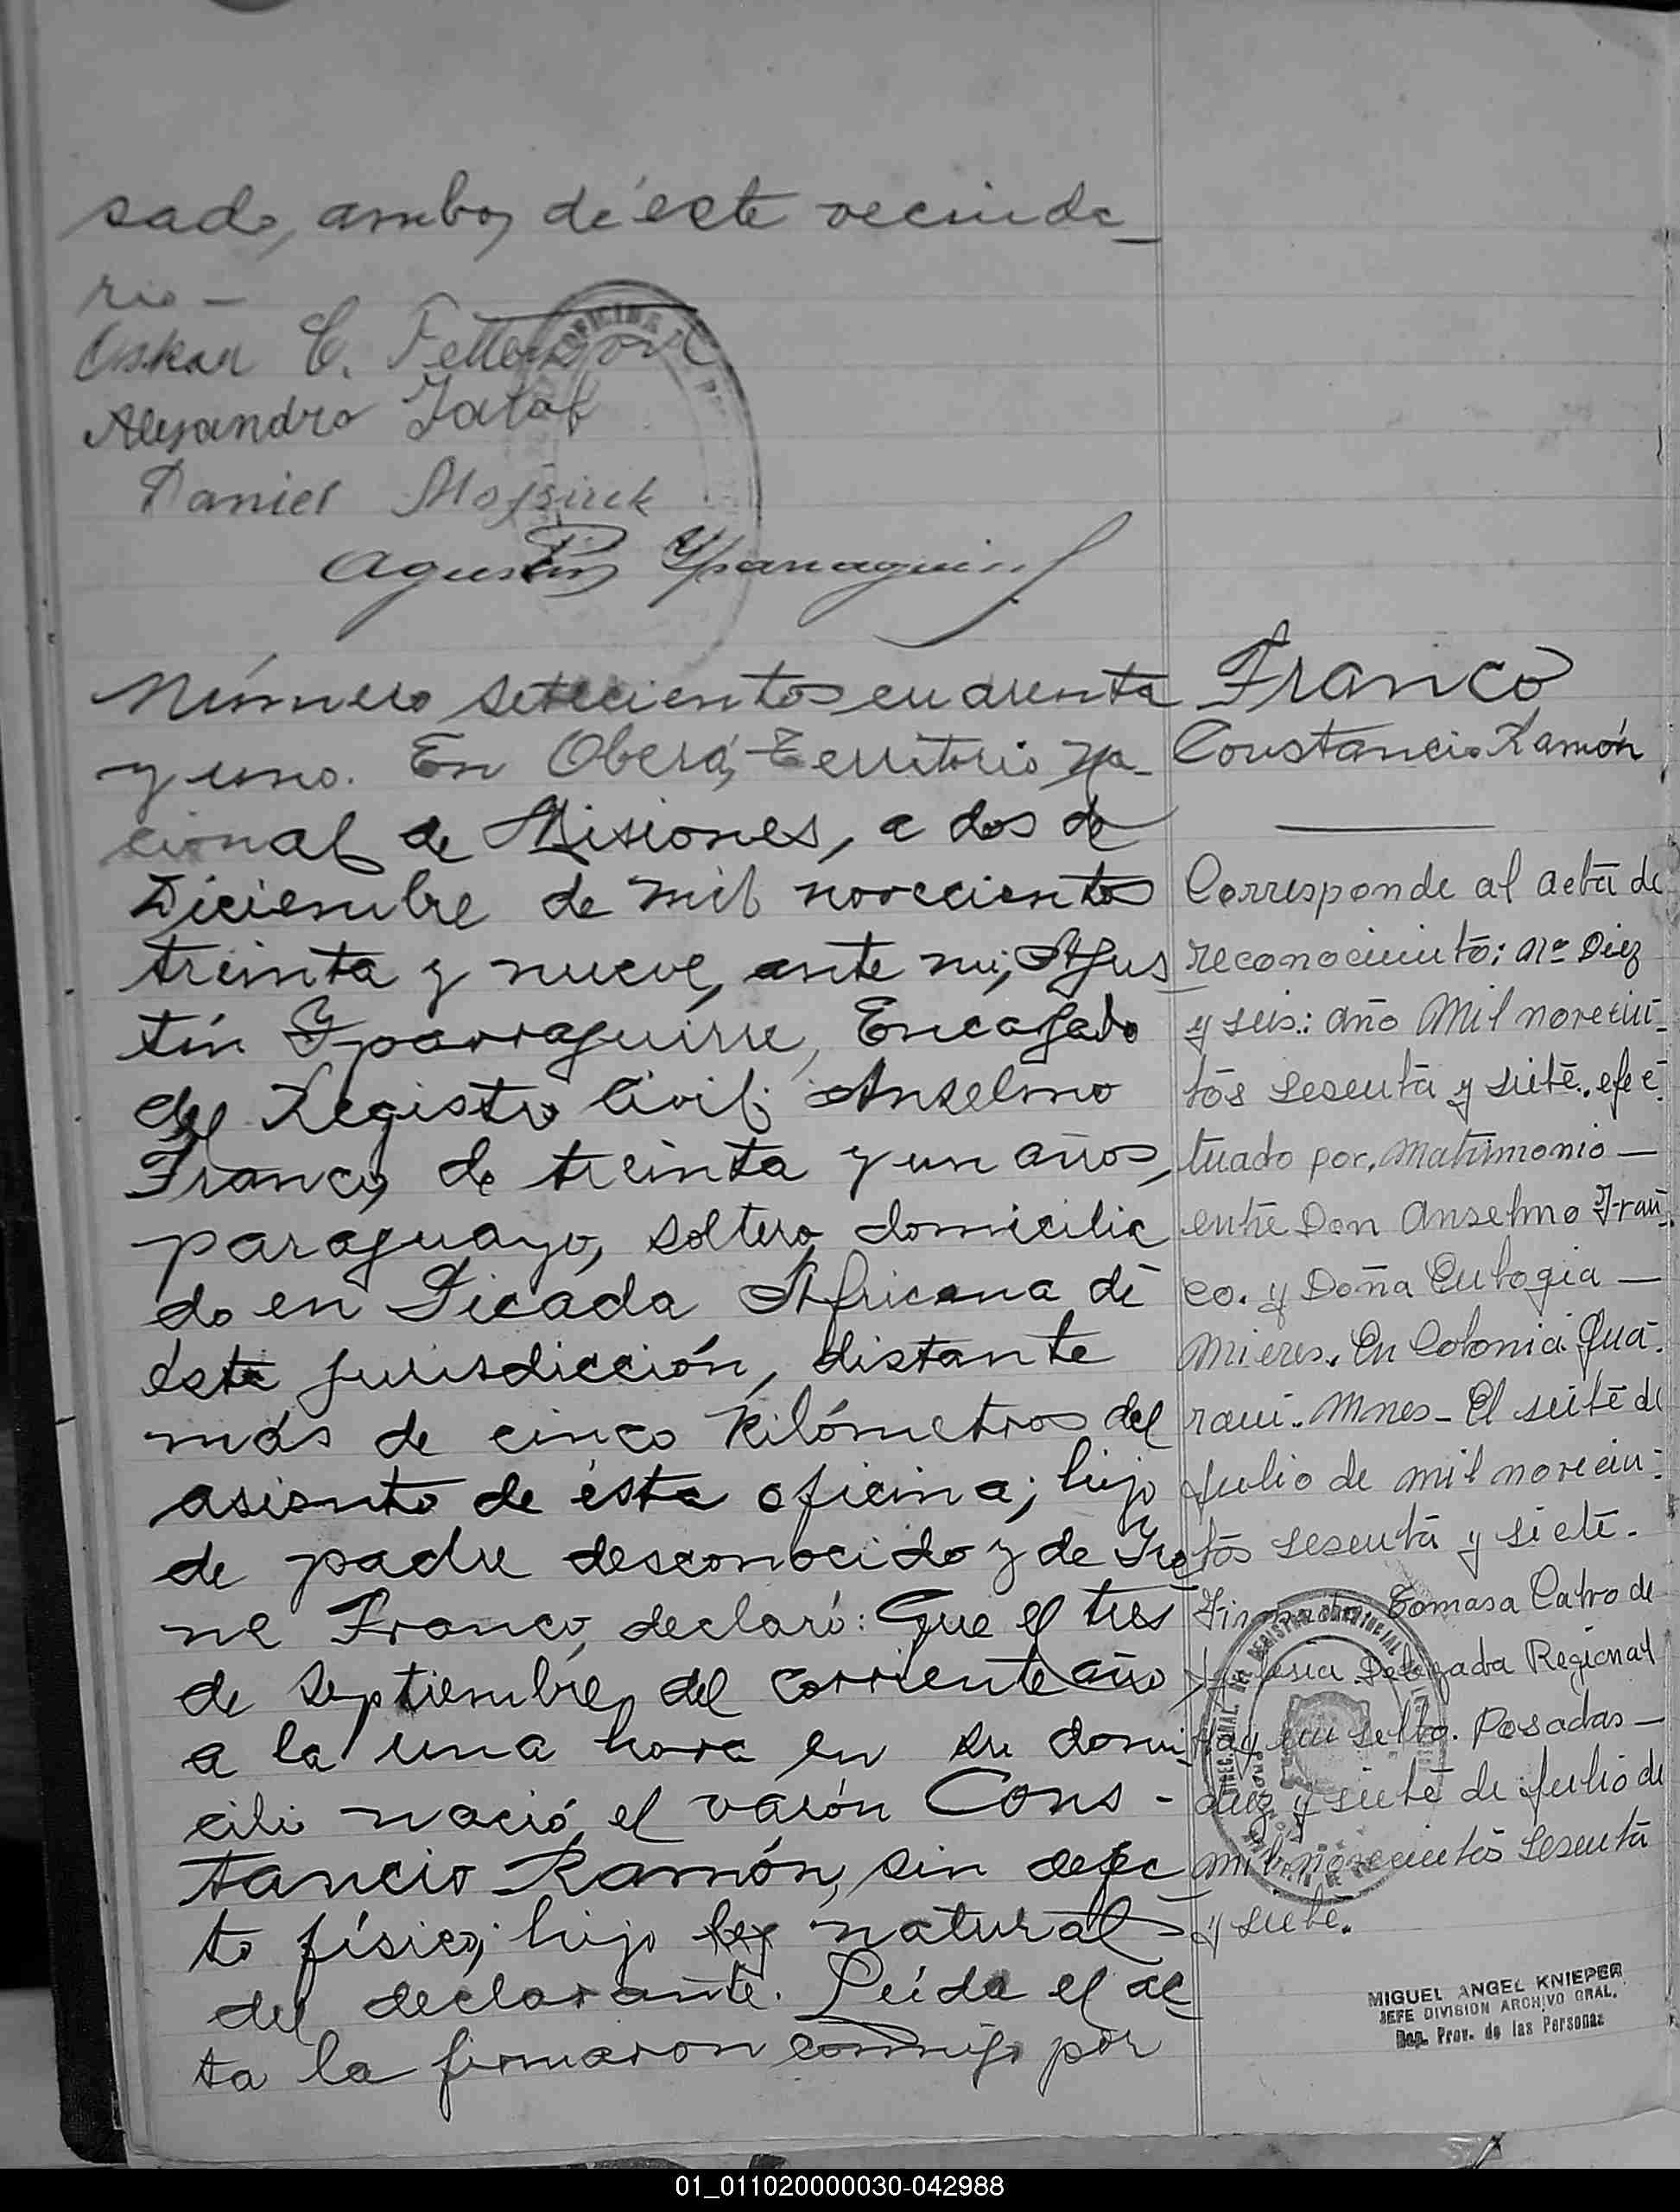 sado, ambos de éste vecinda-
rio -
Oskar C.
Alejandro
Daniel
Agustín Yparraguirre
OFICINA
Número setecientos cuarenta
y uno. En Oberá, Territorio Na-
cional de Misiones, a dos de
Diciembre de mil novecientos
treinta y nueve, ante mí, Agus-
tín Yparraguirre, Encagado
del Registro Civil; Anselmo
Franco, de treinta y un años,
paraguayo, soltero, domicilia
do en Picada Africana de
ésta jurisdicción, distante
más de cinco kilómetros del
asiento de ésta oficina; hijo
de padre desconocido y de Ire
ne Franco, declaró: Que el tres
de Septiembre, del corriente año
a la una hora en su domi-
cili nació el varón Cons-
tancio Ramón, sin defec
to físico; hijo leg natural
del declarante. Leída el ac
ta la firmaron conmigo por
Franco
Constancio Ramón
Corresponde al acta de
reconocimiento; nº Diez
y seis: año Mil novecien-
tos sesenta y siete. efec-
tuado por, matrimonio —
entre Don Anselmo Fran-
co. y Doña Eulogia —
Mieres. En Colonia Gua-
raní. Mnes - El siete de
julio de mil novecien-
tos sesenta y siete.
Firmado: Tomasa Catro de
Delegada Regional
Hay un sello. Posadas —
diez y siete de julio de
mil novecientos sesenta
y siete.
MIGUEL ANGEL KNIEPER
JEFE DIVISION ARCHIVO GRAL.
Reg. Prov. de las Personas
01_011020000030-042988